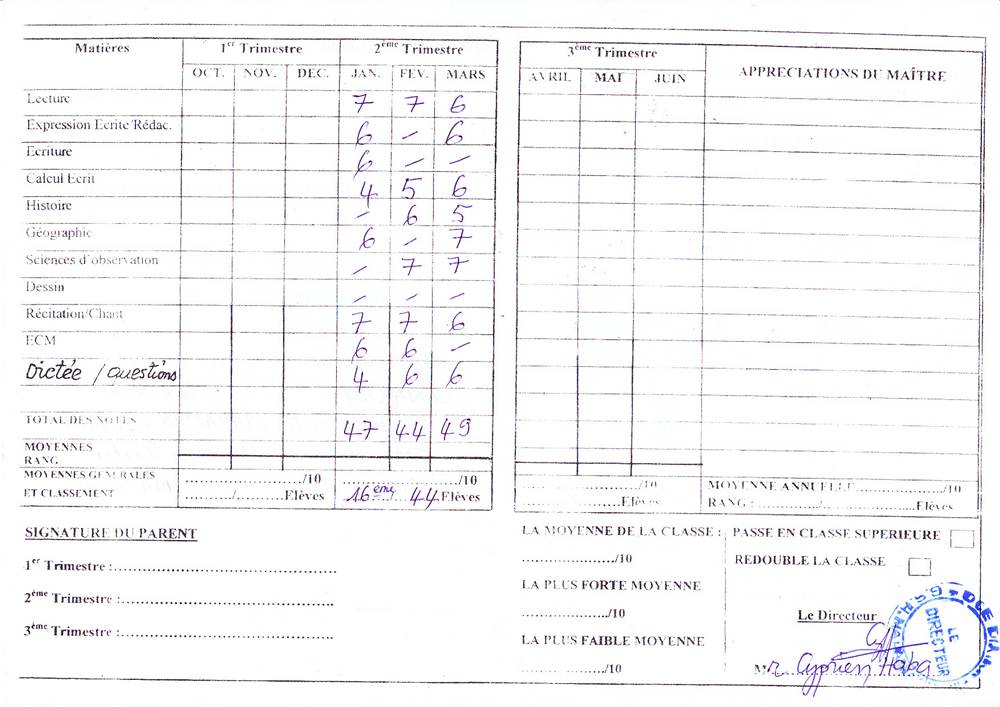 Matières 1er Trimestre 2ème Trimestre 3ème Trimestre APPRECIATIONS DU MAÎTRE
OCT. NOV. DEC. JAN. FEV. MARS AVRIL MAI JUIN
Lecture 7 7 6
Expression Ecrite/Rédac. 6 – 6
Ecriture 6 – –
Calcul Ecrit 4 5 6
Histoire – 6 5
Géographie 6 – 7
Sciences d'observation – 7 7
Dessin – – –
Récitation/Chant 7 7 6
ECM 6 6 –
Dictée / Questions 4 6 6
TOTAL DES NOTES 47 44 49
MOYENNES
RANG
MOYENNES GENERALES ....................../10 ....................../10 ....................../10 MOYENNE ANNUELLE....................../10
ET CLASSEMENT ........../..........Elèves 16ème 44 Elèves ....................Elèves RANG : ............/..................Elèves
SIGNATURE DU PARENT
1er Trimestre :........................................
2ème Trimestre :........................................
3ème Trimestre :........................................
LA MOYENNE DE LA CLASSE :
..................../10
LA PLUS FORTE MOYENNE
..................../10
LA PLUS FAIBLE MOYENNE
..................../10
PASSE EN CLASSE SUPERIEURE
REDOUBLE LA CLASSE
Le Directeur
Cyprien Haba
LE DIRECTEUR